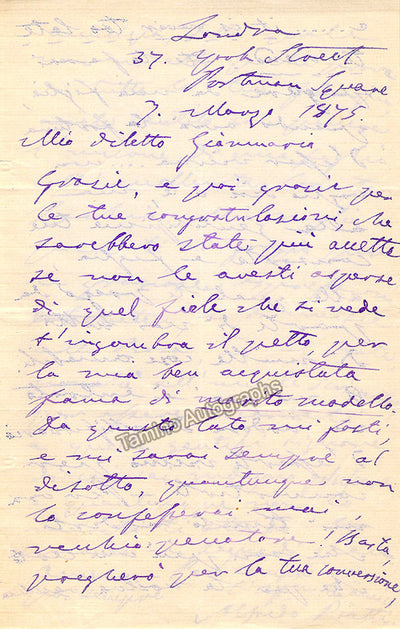 Londra
37. York Street
Portman Square
7. Marzo 1875
Mio diletto Gianmaria
Grazie, e poi grazie per
le tue congratulazioni, che
sarebbero state più accette
se non le avesti asperse
di quel fiele che si vede
t'ingombra il petto, per
la mia ben acquistata
fama di marito modello.
Da questo lato mi fosti,
e mi sarai sempre al
disotto, quantunque non
lo confesserai mai,
vecchio peccatore! Basta,
pregherò per la tua conversione,
Tamino Autographs